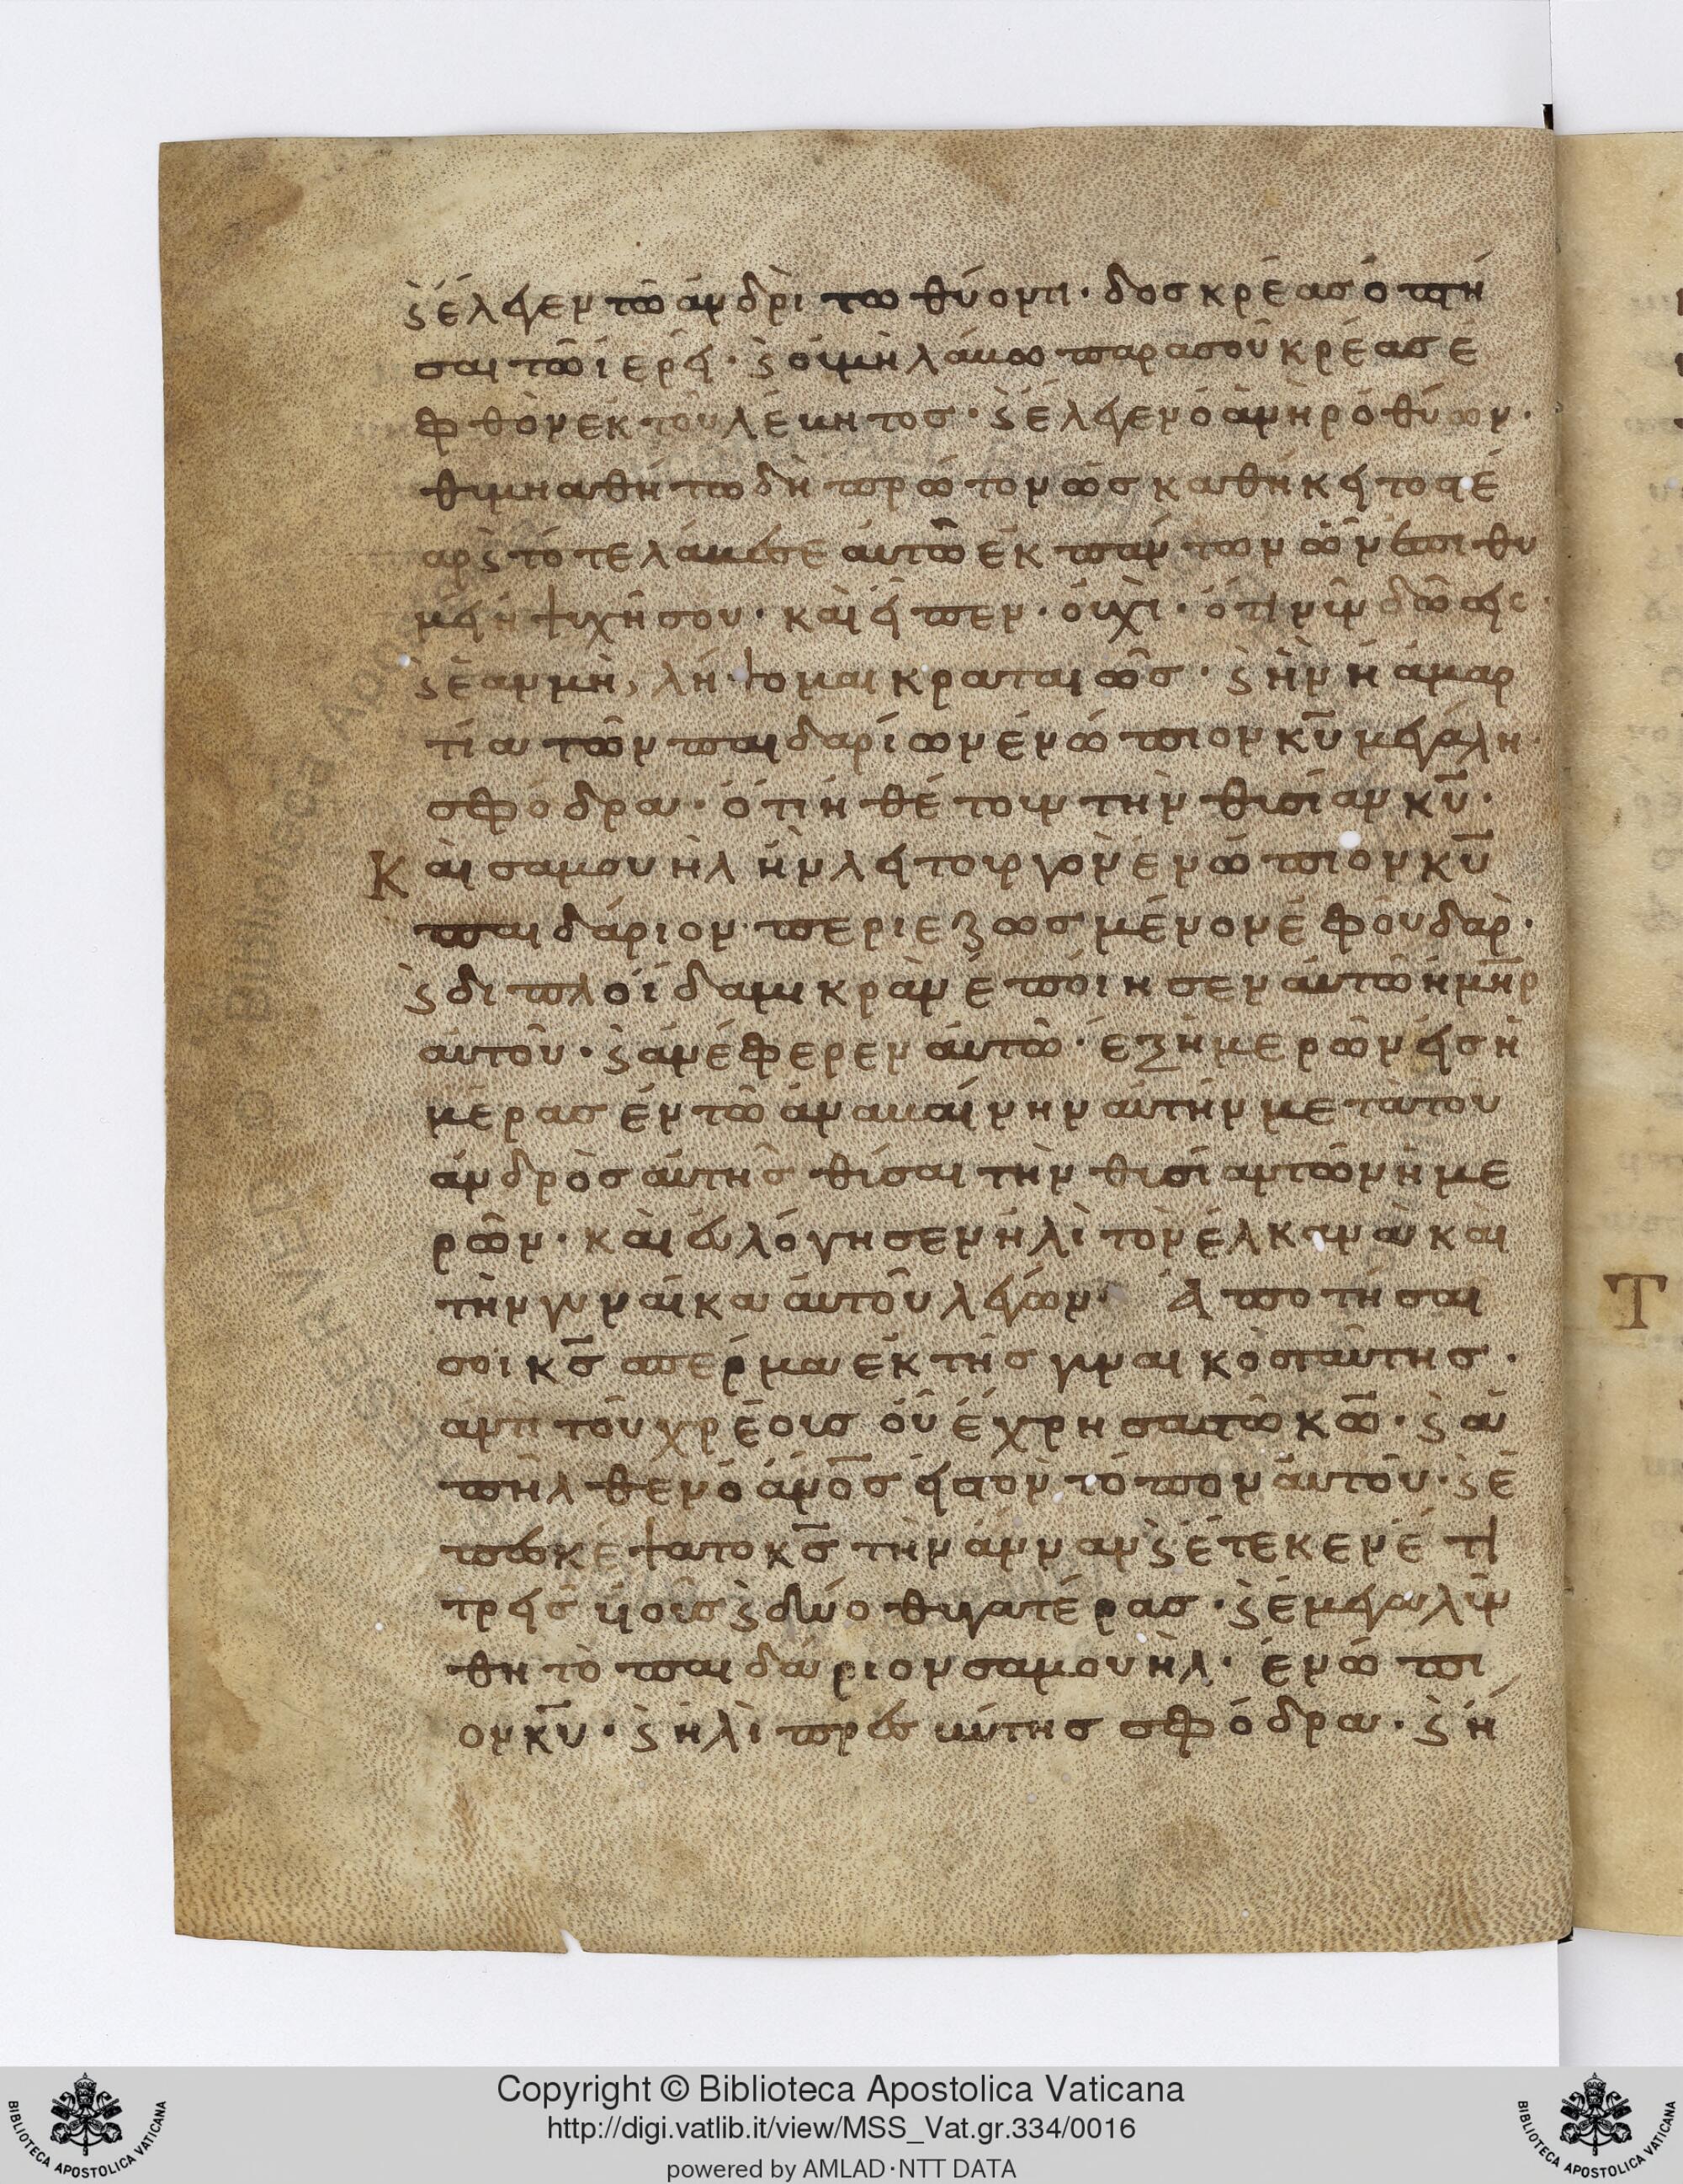 ϛ ἔλεγεν τῶ ἀνδρὶ τῶ θύοντι · δος κρέας ὀπτῆ
σαι τῶ ἱερεῖ · ϛ οὐ μὴ λάβω παρα σοῦ κρέας ἑ
φθὸν ἐκ τοῦ λέβητος · ϛ ἔλεγεν ὁ ἀνὴρ ὁ θύων ·
θυμιαθήτω δὴ πρῶτον ὡς καθήκει τὸ στέ
αρ ϛ τότε λάβε σεαυτῶ ἐκ πάντων ὧν ἐπιθυ
μεῖ ἡ ψυχή σου · καὶ εἶπεν · οὐχὶ · ὅτι νῦν δώσεις ·
ϛ ἐαν μὴ, λήψομαι κραταιῶς · ϛ ἦν ἡ ἁμαρ
τία τῶν παιδαρίων ἐνώπιον κυ μεγάλη ·
σφόδρα · ὅτι ἠθέτουν τὴν θυσίαν κυ ·
Καὶ σαμουὴλ ἦν λειτουργὸν ἐνώπιον κυ
παιδάριον περιεζωσμένον ἐφοὺδ βαρ ·
ϛ διπλοΐδα μικρὰν ἐποίησεν αὐτῶ ἡ μηρ
αὐτοῦ · ϛ ἀνέφερεν αὐτῶ · ἐξ ἡμερῶν εἰς ἡ
μέρας ἐν τῶ ἀναβαίνην αὐτὴν μετὰ του
ἀνδρὸς αὐτῆς θῦσαι τὴν θυσίαν τῶν ἡμε
ρῶν · καὶ εὐλόγησεν ἡλὶ τὸν ἑλκανὰ καὶ
τὴν γυναῖκα αὐτοῦ λέγων · Ἀποτίσαι
σοι κς σπέρμα ἐκ τῆς γυναικὸς ταύτης ·
ἀντὶ τοῦ χρέους οὗ ἔχρησας τῶ κω · ϛ ἀ
πῆλθεν ὁ ἀνος εἰς τὸν τόπον αὐτοῦ · ϛ ἐ
πεσκέψατο κς τὴν ἄνναν ϛ ἔτεκεν ἔτι
τρεῖς υἱοὺς ϛ δύο θυγατέρας · ϛ ἐμεγαλύν
θη τὸ παιδάριον σαμουὴλ · ἐνώπι
ον κυ · ϛ ἡλὶ πρεσβύτης σφόδρα · ϛ ἤ
Τ
Copyright © Biblioteca Apostolica Vaticana
http://digi.vatlib.it/view/MSS_Vat.gr.334/0016
powered by AMLAD·NTT DATA
BIBLIOTECA APOSTOLICA VATICANA
BIBLIOTECA APOSTOLICA VATICANA